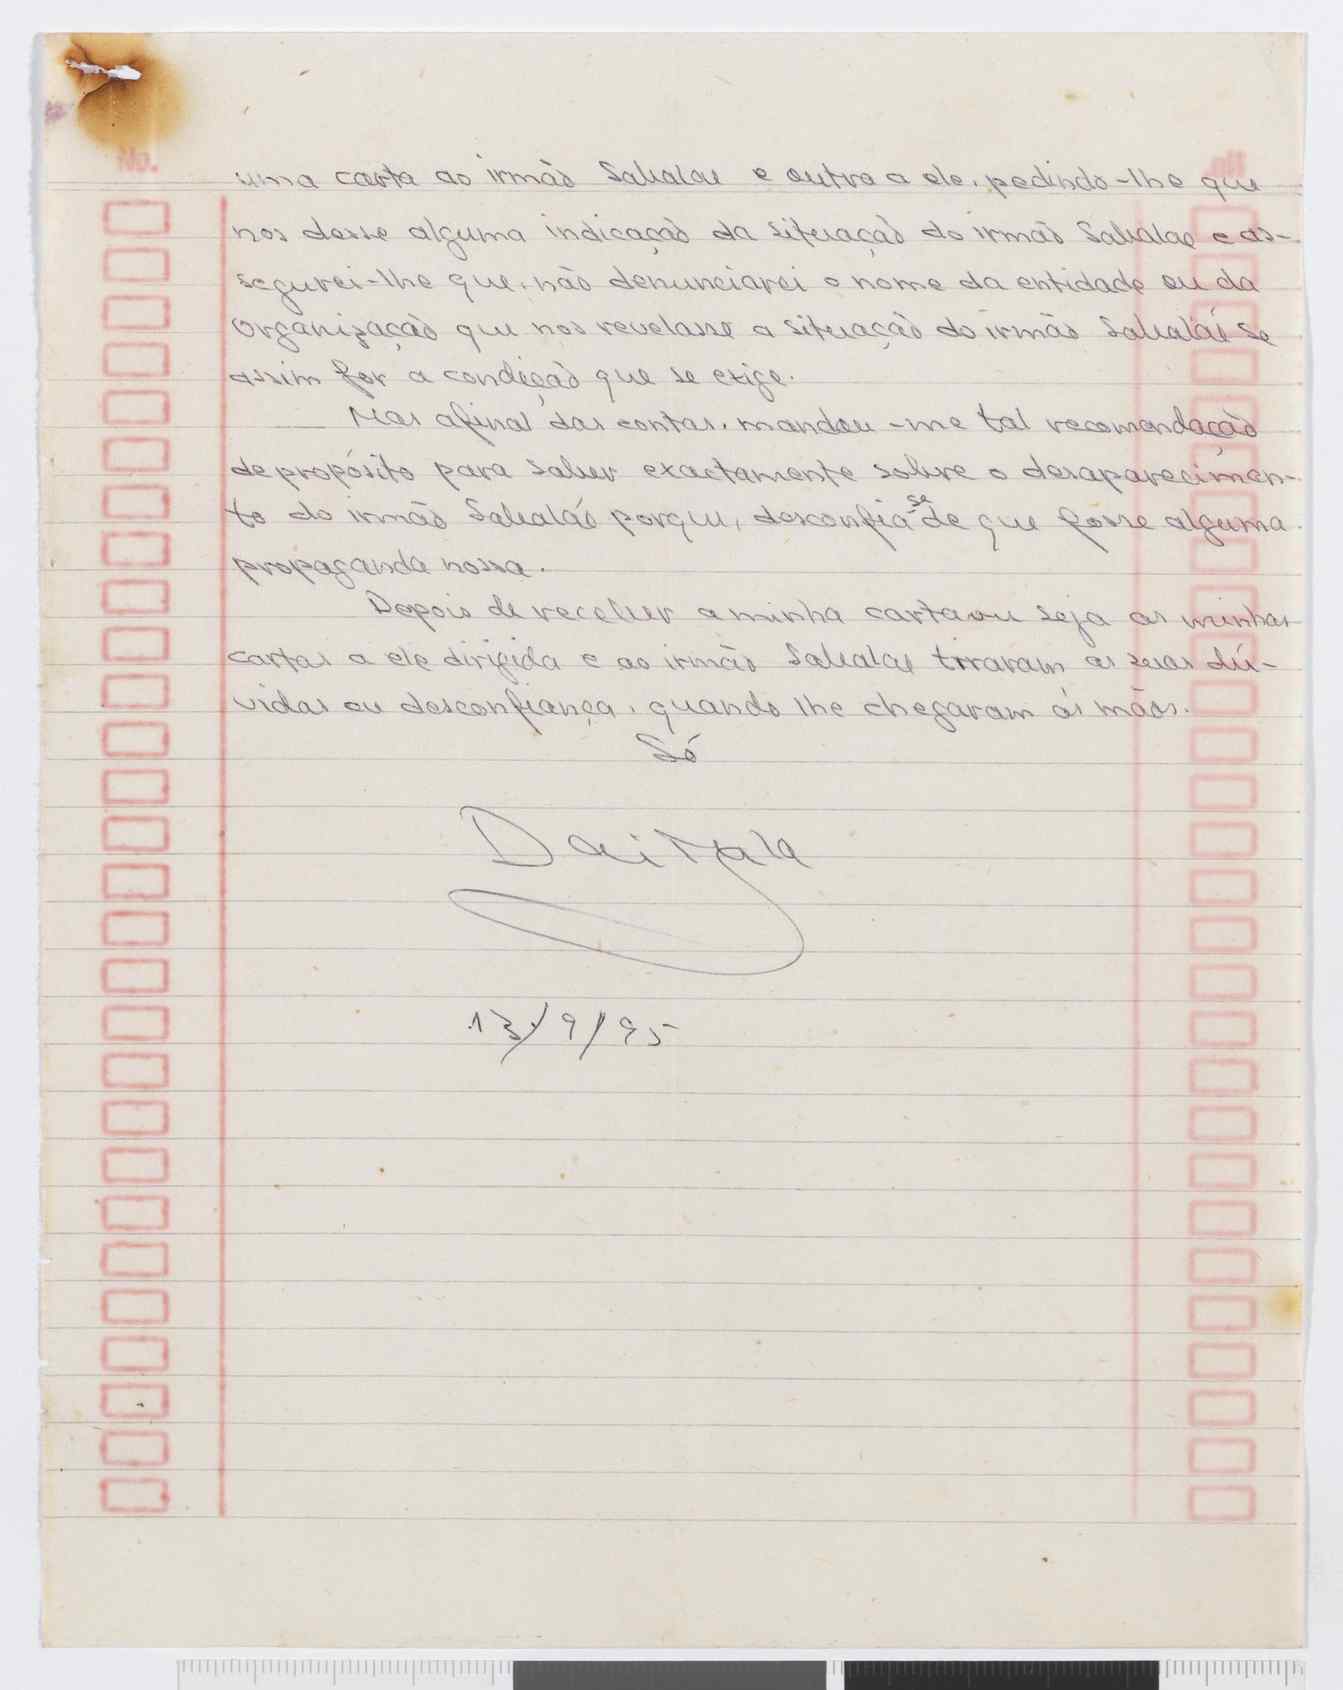 uma carta ao irmão Sabalae e outra a ele, pedindo-lhe que
nos desse alguma indicação da situação do irmão Sabalae e as-
segurei-lhe que, não denunciarei o nome da entidade ou da
Organização que nos revelasse a situação do irmão Sabalae se
assim for a condição que se exige.
Mas afinal das contas, mandou-me tal recomendação
de propósito para saber exactamente sobre o desaparecimen-
to do irmão Sabalae porque, desconfia se de que fosse alguma
propaganda nossa.
Depois de receber a minha carta ou seja as minhas
cartas a ele dirigida e ao irmão Sabalae tiraram as suas dú-
vidas ou desconfiança, quando lhe chegaram ás mãos.
Só
Daitula
13/9/95